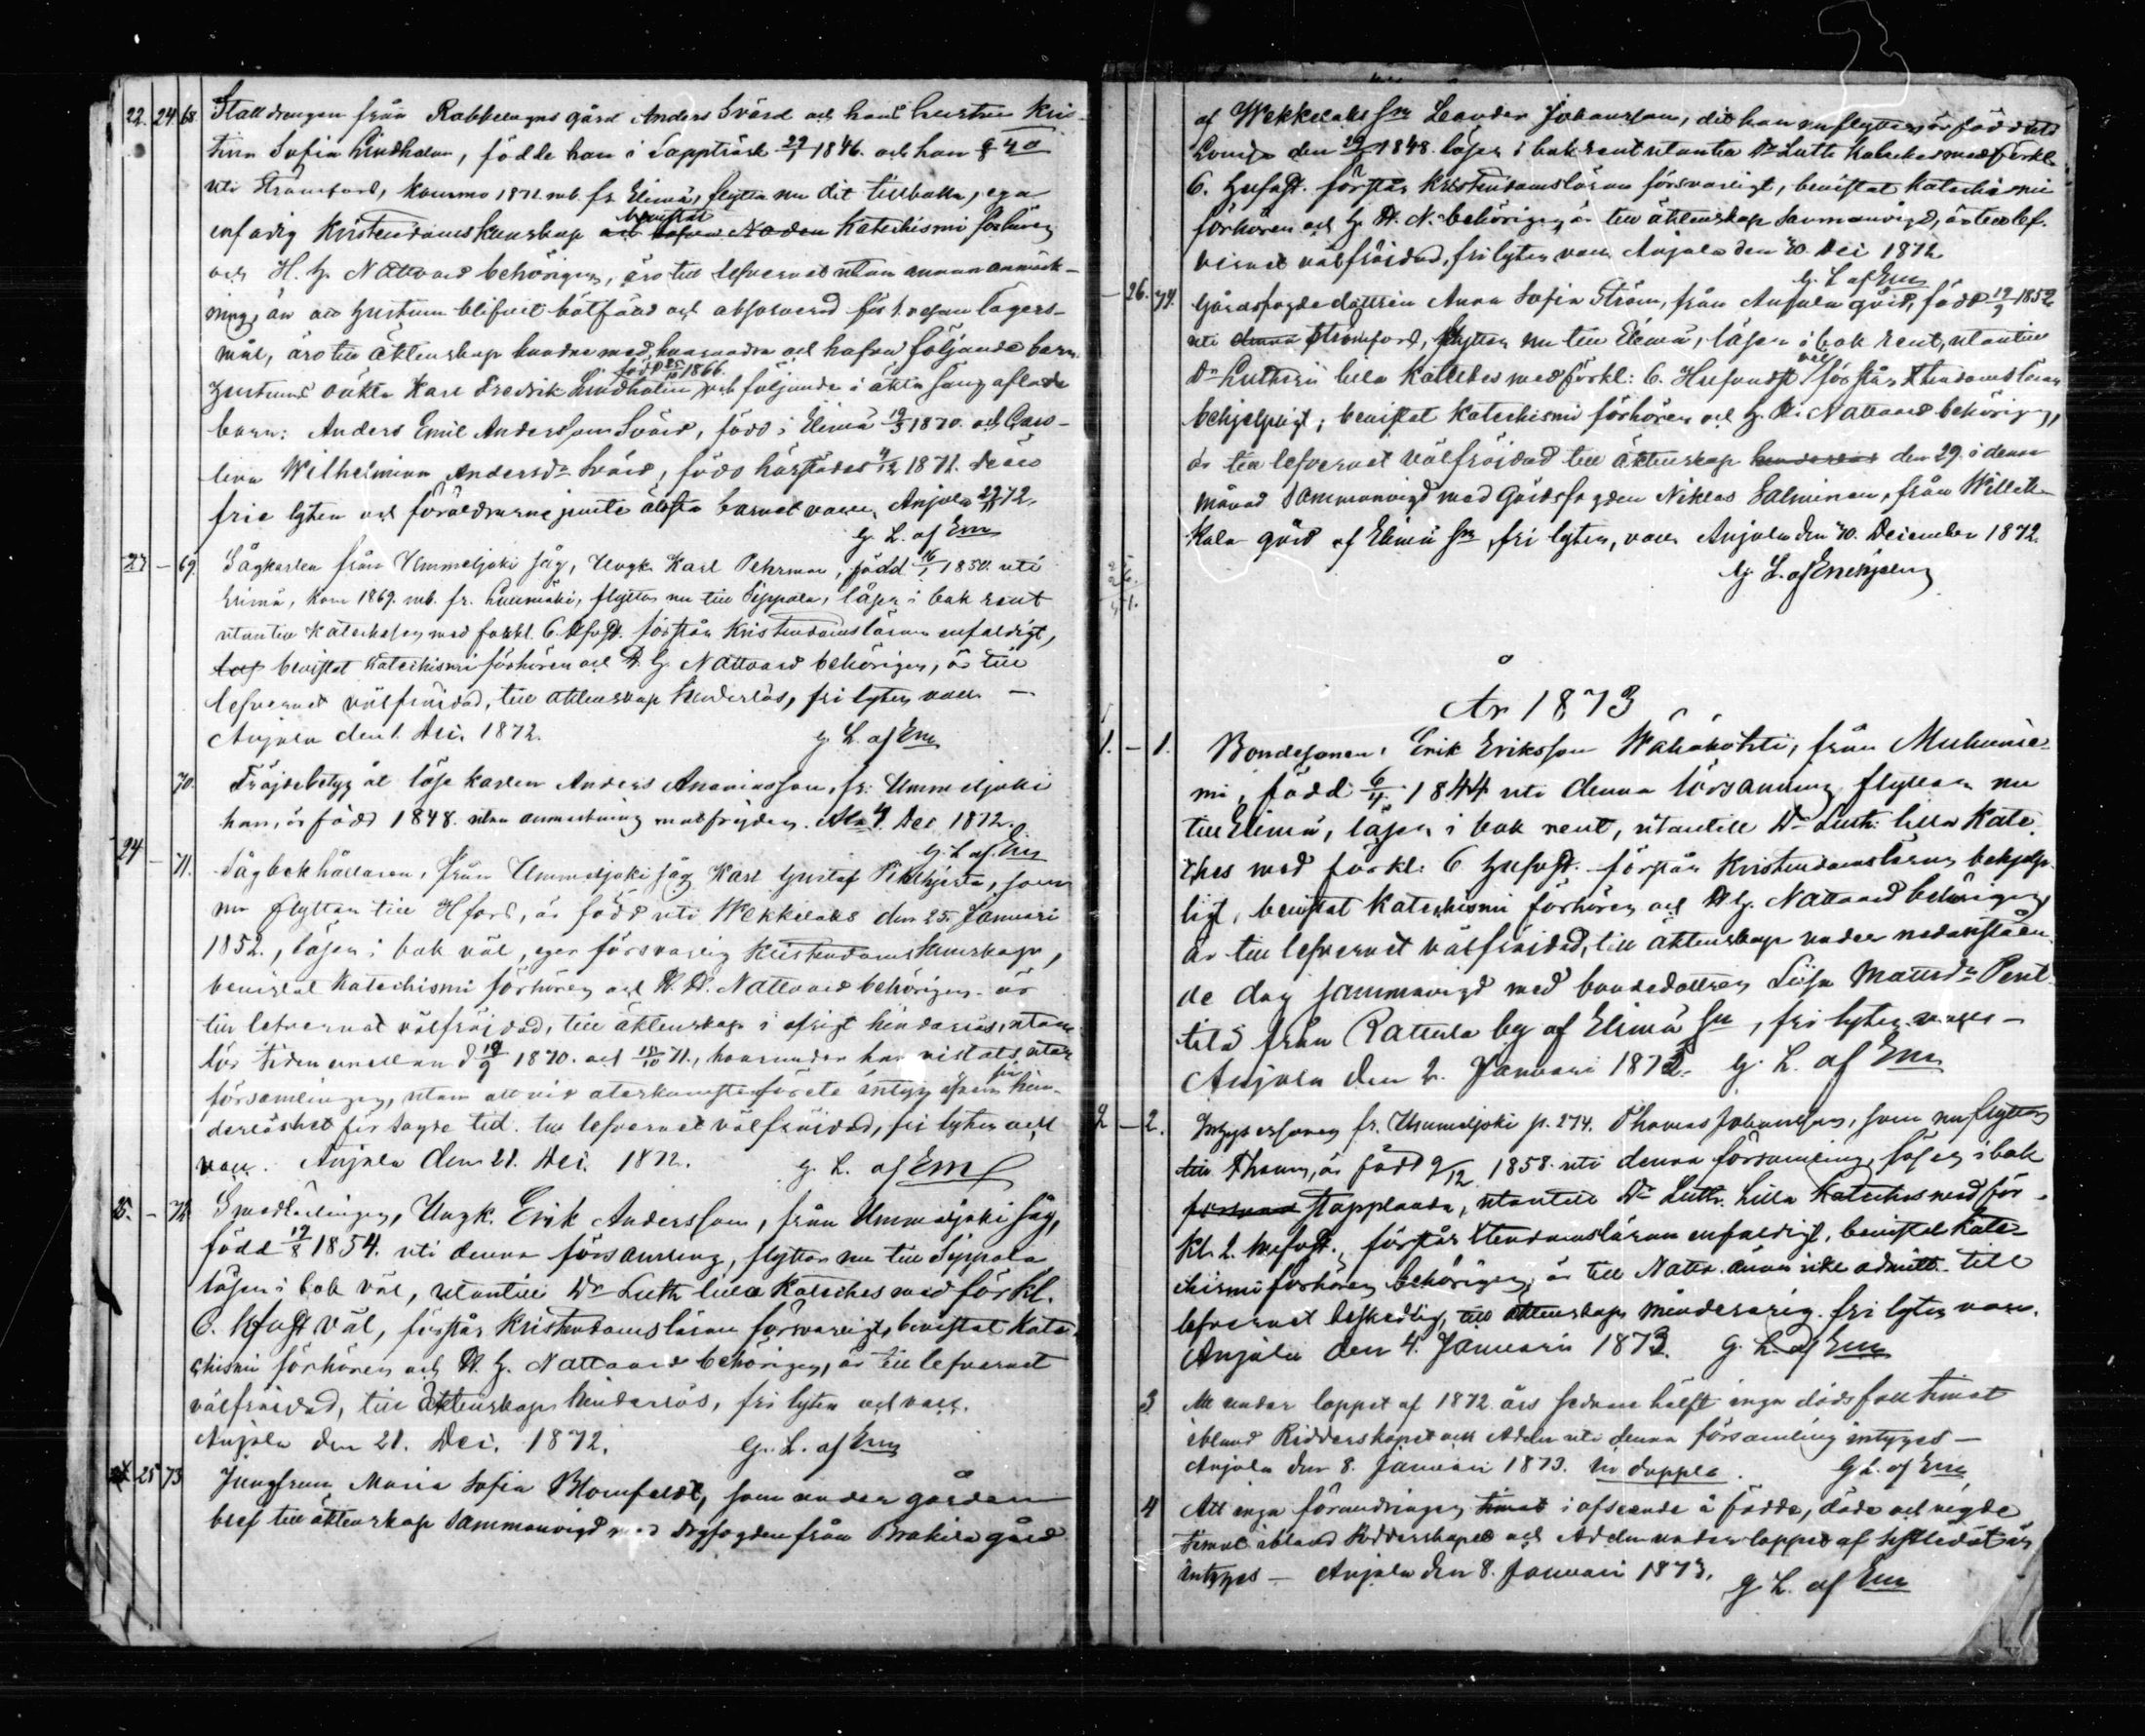 22. 24 68. Stalldrengen från Rabbelugns gård Anders Svärd och hans hustru Kris-
tina Sofia Lindholm, födde han i Lappträsk 29/1 1846. och hon 8/8 40
uti Strömfors, komne 1871. mb. fr. Elimä, flytta nu dit tillbaka, ega
enfaldig Kristendomskunskap bevistat Katechismi förhören
och H. H. Nattvard behörigen, äro till lefvernet utan annan anmärk-
ning, än att hustrun blifvit bötfäld och absolverad för 1. resan lägers-
mål, äro till äktenskap bundna med hvarandra och hafva följande barn.
hustruns oäkta Karl Fredrik Lindholm född 25/10 1866. och följande i äkta säng aflade
barn: Anders Emil Andersson Svärd, född i Elimä 19/3 1870. och Caro-
lina Wilhelmina Andersdr Svärd, född härstädes 4/12 1871. De äro
frie lyten och föräldrarne jemte äldsta barnet vacc. Anjala 29/11 72.
G. L. af Em
23 – 69. Sågkarlen från Ummeljoki såg, Ungk. Karl Pehrman, född 16/1 1850. uti
Elimä, kom 1869. mb. fr. Luumäki, flyttar nu till Sippola, läser i bok rent
utantill Katechesen med förkl. 6. Hufvst. förstår Kristendomsläran enfaldigt,
bevistat Katechismi förhören och H. H. Nattvard behörigen, är till
lefvernet välfräjdad, till äktenskap hinderlös, fri lyten vacc. –
Anjala den 1. Dec. 1872. G. L. af Em
70. Fräjdebetyg åt löse karlen Anders Ananiasson, fr. Ummeljoki
han är född 1848. utan anmärkning om frejden. Ala 4. Dec. 1872.
G. L. af Em
24 – 71. Sågbokhållaren, från Ummeljoki såg Karl Gustaf, som
nu flyttar till Hfors, är född uti Wekkelaks den 25. Januari
1852., läser i bok väl, eger försvarlig Kristendomskunskap,
bevistat Katechismi förhören och H. H. Nattvard behörigen. är
till lefvernet välfräjdad, till äktenskap i öfrigt hinderlös, utom
för tiden emellan d 19/9 1870. och 18/10 71., hvarunder han vistats utom
församlingen, utan att vid återkomsten förete intyg öfver sin hin-
derlöshet för sagde tid. till lefvernet välfräjdad, fri lyten och
vacc. Anjala den 21. Dec. 1872. G. L. af Em
25. – 72. Smedlärlingen, Ungk. Erik Andersson, från Ummeljoki såg,
född 17/8 1854. uti denna församling, flyttar nu till Sippola
läser i bok väl, utantill Dr Luth. lilla Katches med förkl.
6. Hufst väl, förstår Kristendomsläran försvarligt, bevistat Kate-
chismi förhören och H. H. Nattvard behörigen, är till lefvernet
välfräjdad, till äktenskap hinderlös, fri lyten och vacc.
Anjala den 21. Dec. 1872. G. L. af Em
25 73 Jungfrun Maria Sofia Blomfeldt, som under gårdagen
blef till äktenskap sammanvigd med dagfogden från Brakila gård
af Wekkelaks Sn Leander Johansson, dit hon nu flyttar är född uti
Lovisa den 29/ 1848. läser i bok rent utantill Dr Luth. Kateches med förkl.
6. Hufvst. förstår Kristendomsläran försvarligt, bevistat Katechismi
förhören och H. H. N. behörigen, är till äktenskap sammanvigd, är till lef-
vernet välfräjdad, fri lyten vacc. Anjala den 30. Dec 1872.
G. L. af Em
26. 74. Gårdsfogdedottren Anna Sofia Ström, från Anjala gård, född 19/9 1852
uti Strömfors, flyttar nu till Elimä, läser i bok rent, utantill
Dr Lutheri lilla Katches med förkl: 6. Hufvudst. väl förstår Xtendomsläran
behjelpligt, bevistat Katechismi förhören och H. H. Nattvard behörigen,
är till lefvernet välfräjdad till äktenskap den 29. i denna
månad sammanvigd med Gårdsfogden Niklas Salminen, från Willik-
kala gård af Elimä Sn fri lyten, vacc. Anjala den 30. December 1872.
G. L. af Enehjelm
År 1873
1. – 1. Bondesonen Erik Eriksson Wähäkötti, från Muhinie-
mi, född 6/4 1844 uti denna församling flyttar nu
till Elimä, läser i bok rent, utantill Dr Luth. lilla Kate-
ches med förkl: 6 Hufvst. förstår Kristendomsläran behjelp-
ligt, bevistat Katechismi förhören och H. H. Nattvard behörigen,
är till lefvernet välfräjdad, till äktenskap under nedanståen-
de dag sammanvigd med bondedottren Liisa Mattsdr Pent-
tilä från Rattula by af Elimä Sn, fri lyten vacc –
Anjala den 2. Januari 1873. G. L. af Em
2 – 2. fr. Ummeljoki p. 274. Thomas Johansson, som nu flyttar
till, är född 9/12 1858. uti denna församling, läser i bok
stapplande, utantill Dr Luth. Lilla Kateches med för-
kl. 2. Hufvst., förstår Xtendomsläran enfaldigt, bevistat Kate-
chismi förhören behörigen, är till Nattv. ännu icke admitt. till
lefvernet beskedlig, till äktenskap minderårig. fri lyten vacc.
Anjala den 4. Januari 1873. G. L. af Em
3 Att under loppet af 1872 års sednare hälft inga dödsfall timat
ibland Ridderskapet och Adeln uti denna församling intygas –
Anjala den 8. Januari 1873. in duplo. G. L. af Em
4 Att inga förändringar i afseende å födde, döde och vigde
timat ibland Ridderskapet och Adeln under loppet af sistledet år
intygas – Anjala den 8. Januari 1873. G. L. af Em